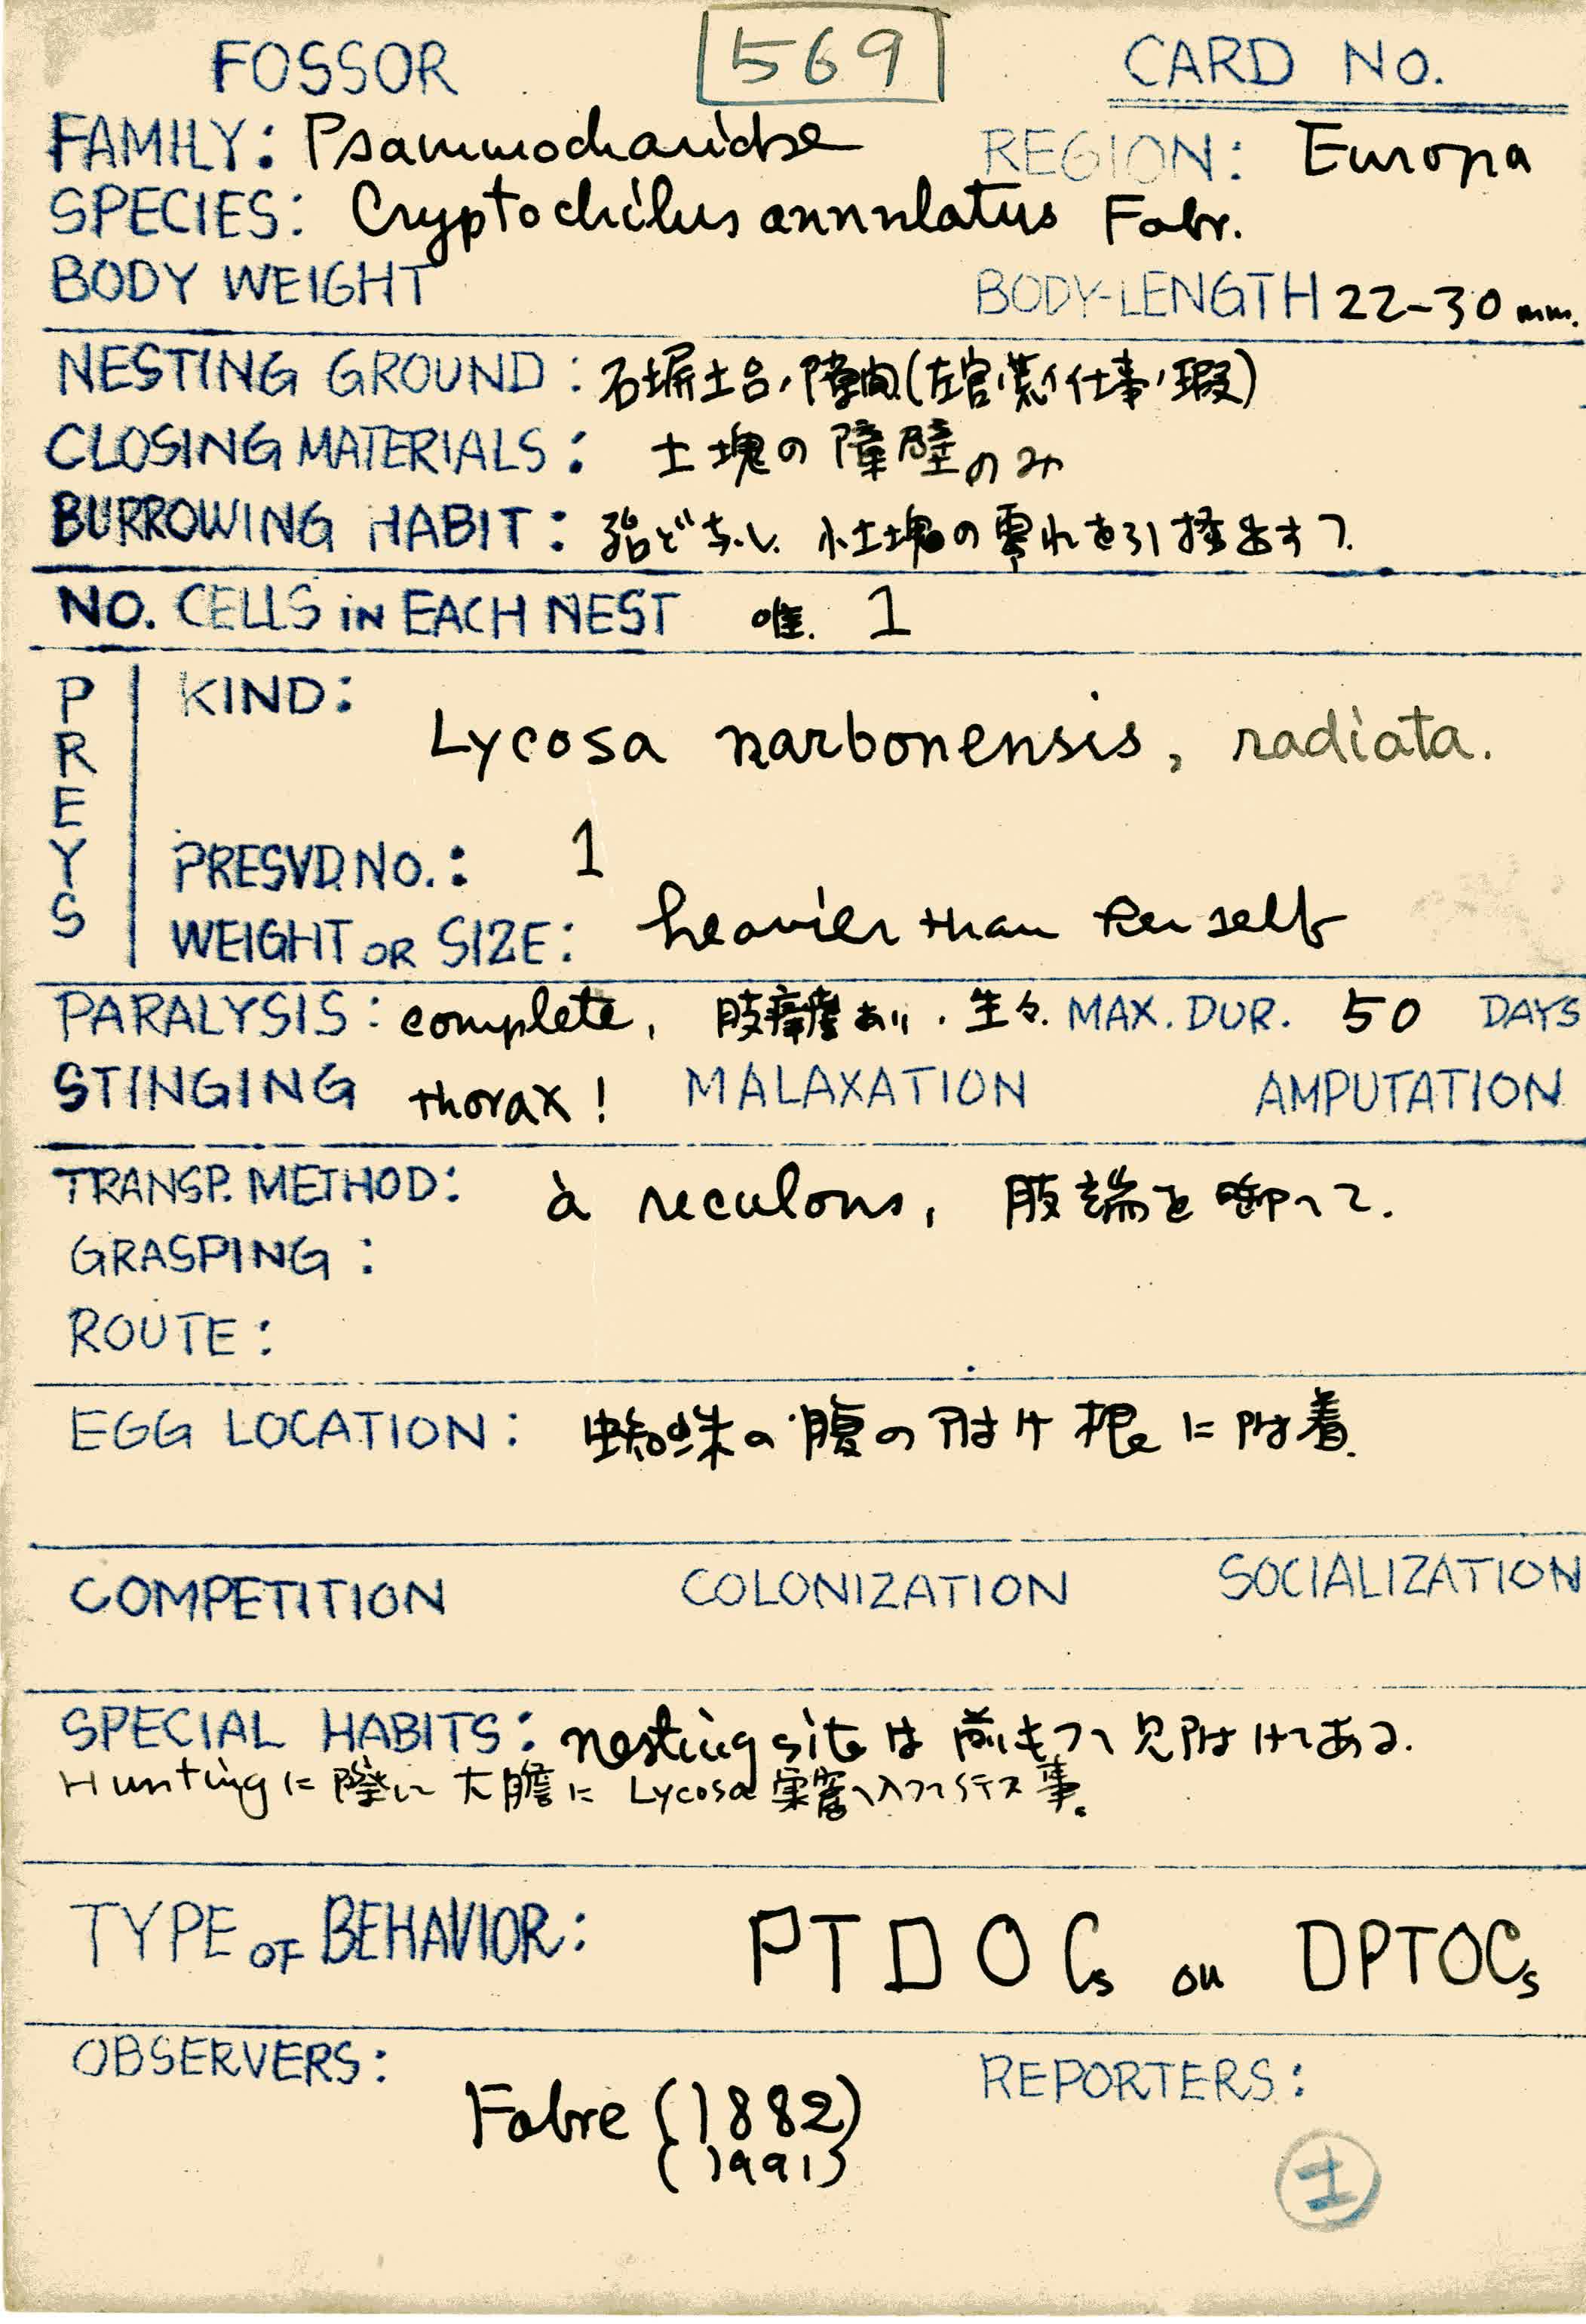 FOSSOR 569 CARD NO.
FAMILY: Psammocharidae REGION: Europa
SPECIES: Cryptochilus annulatus Fabr.
BODY WEIGHT BODY-LENGTH 22-30 mm.
NESTING GROUND: 石塀土台ノ隙間(左官ノ荒仕事ノ瑕)
CLOSING MATERIALS: 土塊の障壁のみ
BURROWING HABIT: 殆どなし. 小土塊の零れを引掻出す
NO. CELLS IN EACH NEST 唯. 1
PREYS
KIND:
Lycosa narbonensis, radiata.
PRESVD. NO.: 1
WEIGHT OR SIZE: heavier than herself
PARALYSIS: complete, 肢痙攣あり. 生々. MAX. DUR. 50 DAYS
STINGING thorax! MALAXATION AMPUTATION
TRANSP. METHOD: à reculons, 肢端を啣へて.
GRASPING:
ROUTE:
EGG LOCATION: 蜘蛛の腹の附け根に附着.
COMPETITION COLONIZATION SOCIALIZATION
SPECIAL HABITS: nesting site は前もつて見附けてある.
Hunting に際し大膽に Lycosa 巣窖へ入つて行ス事。
TYPE OF BEHAVIOR: PTDOCs ou DPTOCs
OBSERVERS: REPORTERS:
Fabre (1882)
(1991)
土